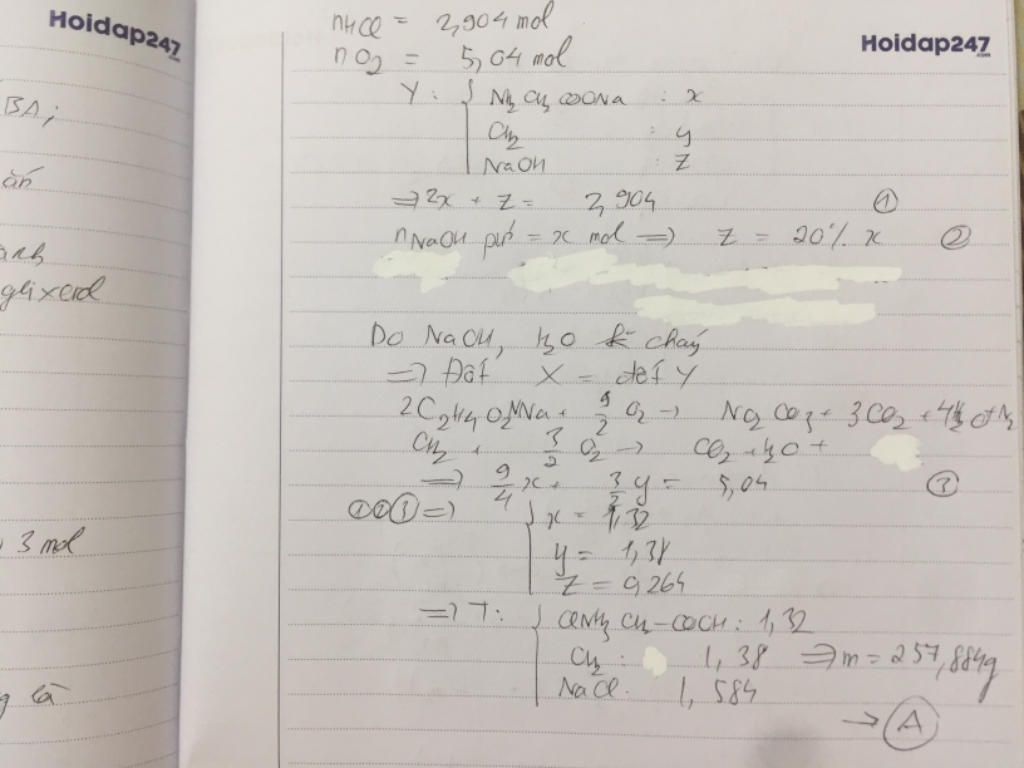 Hoidap247
.com
BA;
glixerol
, 3 mol
g là
Hoidap247
.com
nHCl = 2,904 mol
nO2 = 5,04 mol
Y: { NH2CH2COONa : x
CH2 : y
NaOH : z
=> 2x + z = 2,904 ①
nNaOH pứ = x mol => z = 20% x ②
Do NaOH, H2O k cháy
=> Đốt X = đốt Y
2C2H4O2NNa + 9/2 O2 -> Na2CO3 + 3CO2 + 4H2O + N2
CH2 + 3/2 O2 -> CO2 + H2O +
=> 9/4 x + 3/2 y = 5,04 ③
①②③ => { x = 1,32
y = 1,38
z = 0,264
=> T: { ClNH3CH2-COOH : 1,32
CH2 : 1,38 => m = 257,884g
NaCl : 1,584
-> A